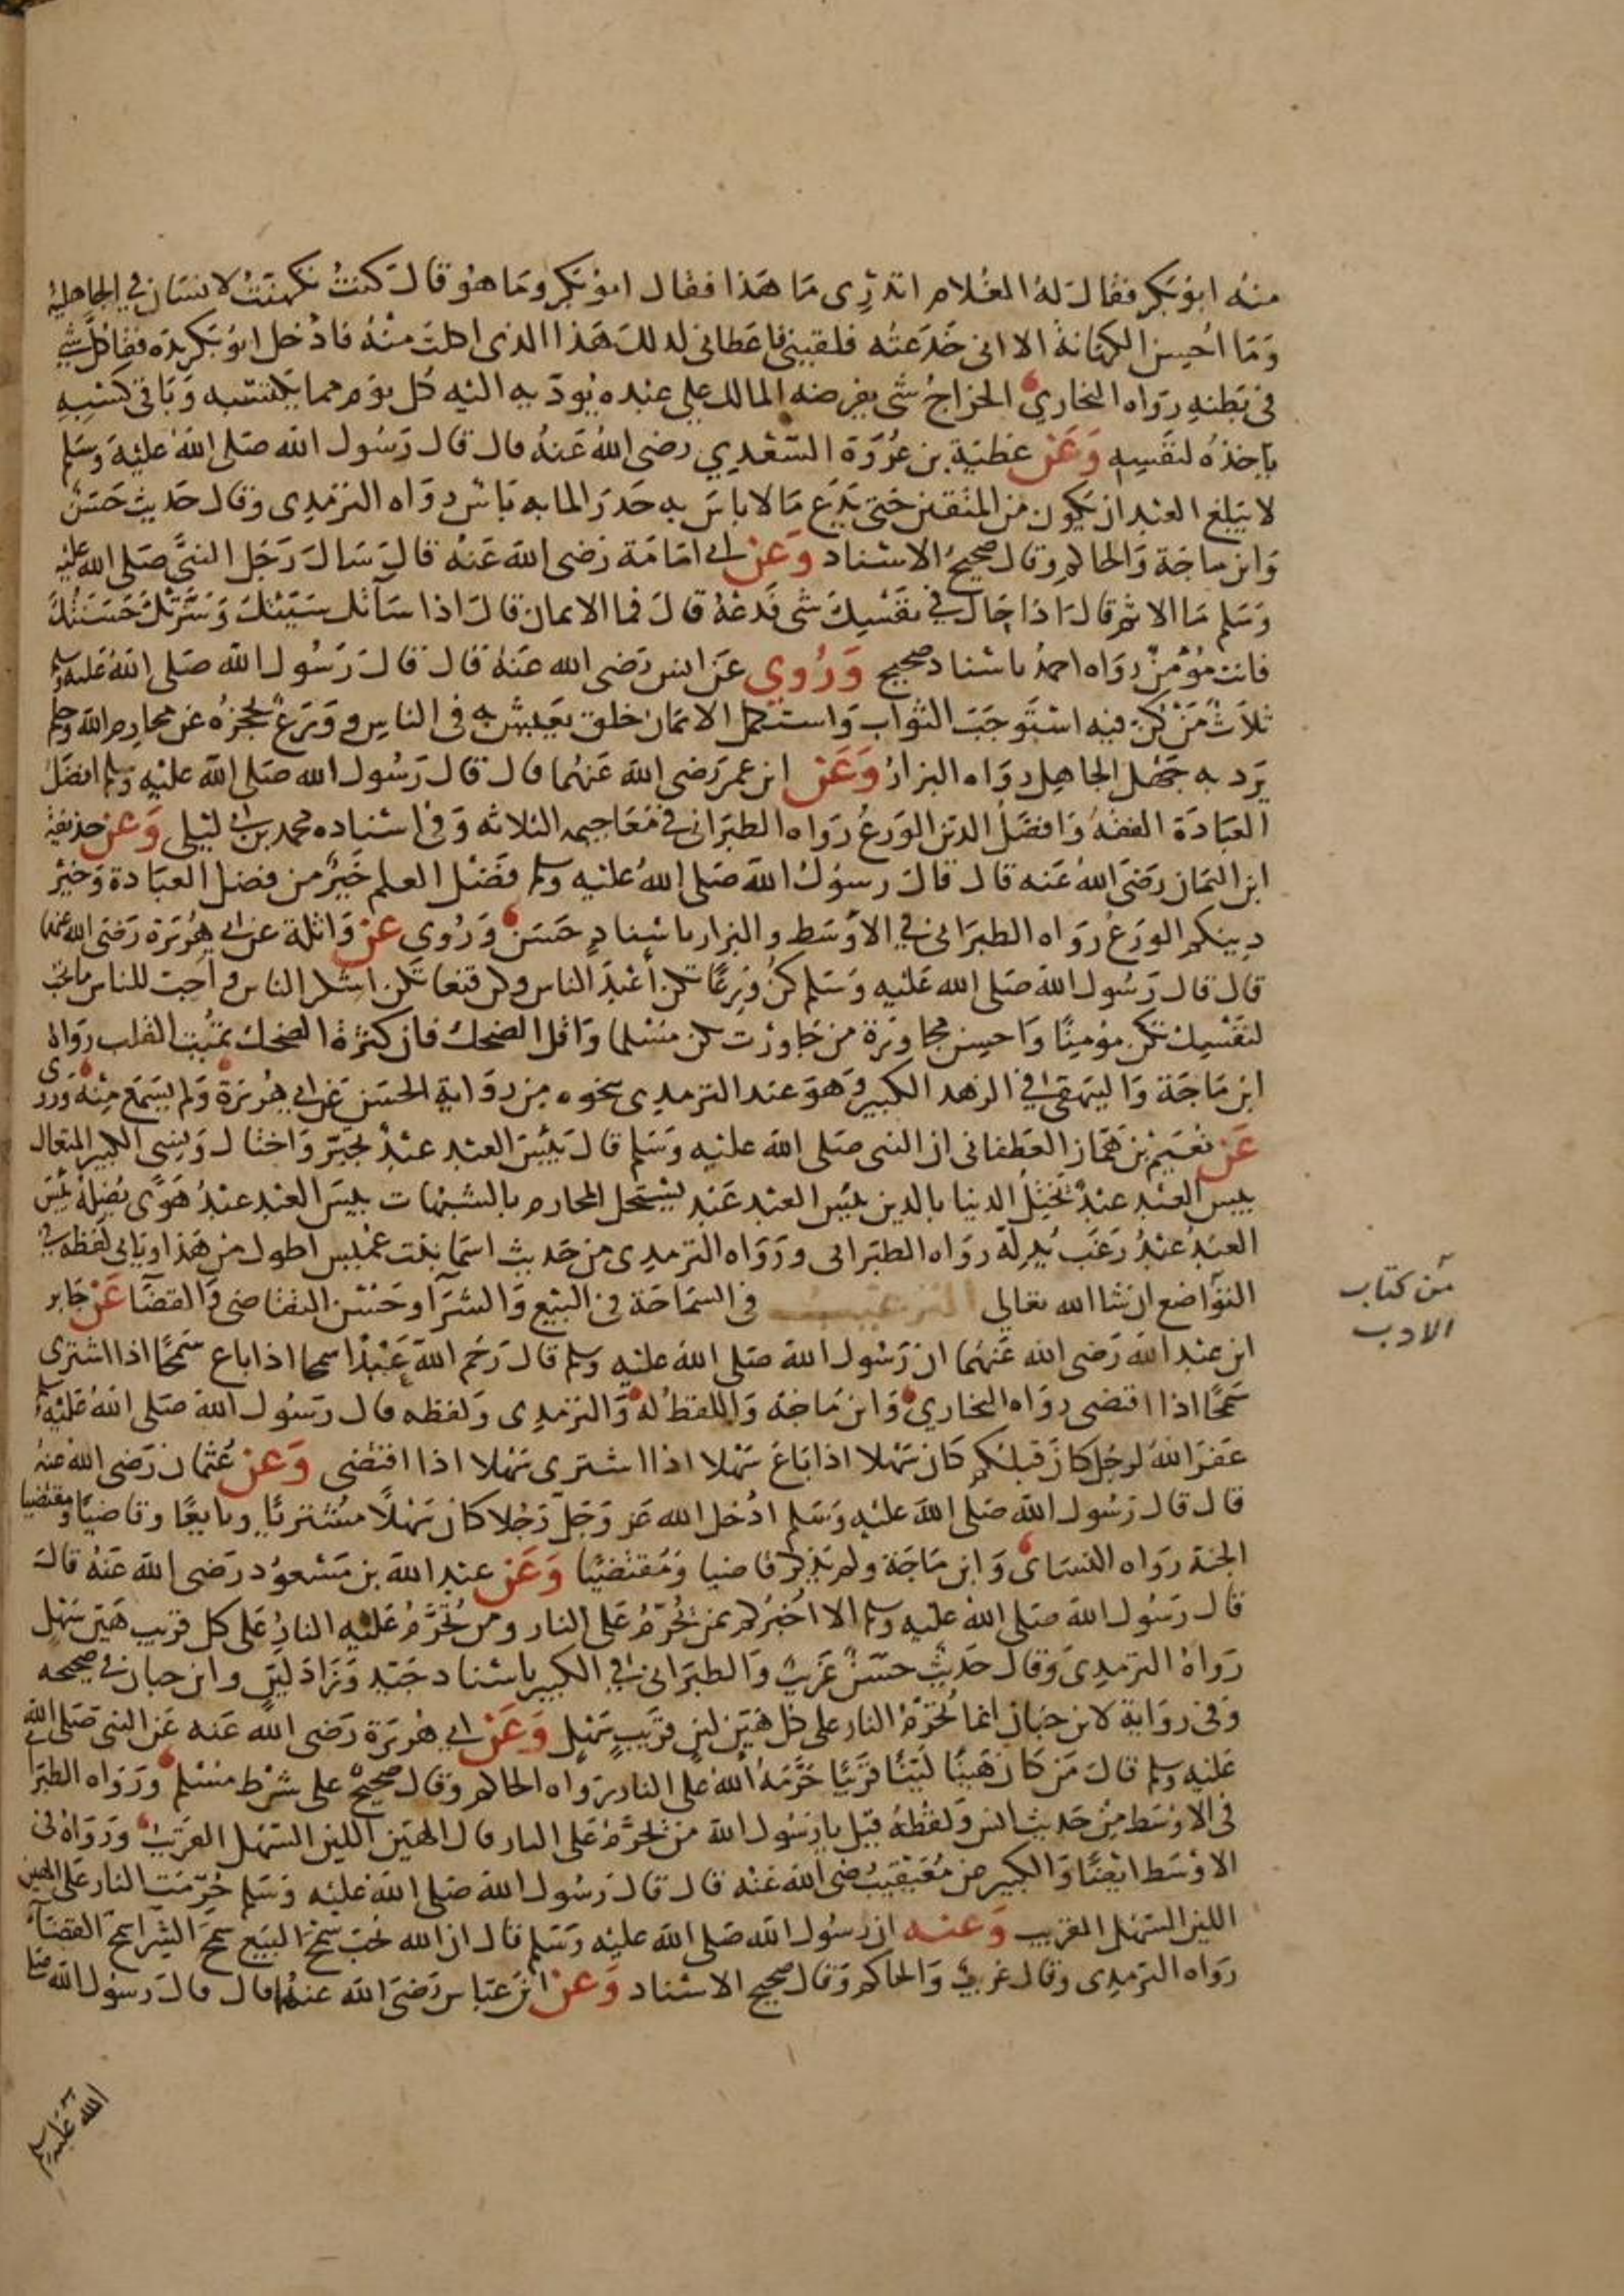 منه ابو بكر فقال له الغلام اتدري ما هذا فقال ابو بكر وما هو قال كنت تكهنت لانسان في الجاهلية
وما احسن الكهانة الا اني خدعته فلقيني فاعطاني لذلك هذا الذي اكلت منه فادخل ابو بكر يده فقاء كل شي
في بطنه رواه البخاري الخراج شي يفرضه المالك على عبده يوديه اليه كل يوم مما يكتسبه وباقي كسبه
ياخذه لنفسه وعن عطية بن عروة السعدي رضي الله عنه قال قال رسول الله صلى الله عليه وسلم
لا يبلغ العبد ان يكون من المتقين حتى يدع ما لا باس به حذرا لما به باس رواه الترمذي وقال حديث حسن
وابن ماجة والحاكم وقال صحيح الاسناد وعن ابي امامة رضي الله عنه قال سال رجل النبي صلى الله عليه
وسلم ما الاثم قال اذا حاك في نفسك شي فدعه قال فما الايمان قال اذا ساتك سيئتك وسرتك حسنتك
فانت مؤمن رواه احمد باسناد صحيح وروي عن انس رضي الله عنه قال قال رسول الله صلى الله عليه وسلم
ثلاث من كن فيه استوجب الثواب واستكمل الايمان خلق يعيش به في الناس وورع يحجزه عن محارم الله وحلم
يرد به جهل الجاهل رواه البزار وعن ابن عمر رضي الله عنهما قال قال رسول الله صلى الله عليه وسلم افضل
العبادة الفقه وافضل الدين الورع رواه الطبراني في معاجيمه الثلاثة وفي اسناده محمد بن ابي ليلى وعن حذيفة
ابن اليمان رضي الله عنه قال قال رسول الله صلى الله عليه وسلم فضل العلم خير من فضل العبادة وخير
دينكم الورع رواه الطبراني في الاوسط والبزار باسناد حسن وروي عن واثلة عن ابي هريرة رضي الله عنهما
قال قال رسول الله صلى الله عليه وسلم كن ورعا تكن أعبد الناس وكن قنعا تكن اشكر الناس واحب للناس ما تحب
لنفسك تكن مؤمنا واحسن مجاورة من جاورت تكن مسلما واقل الضحك فان كثرة الضحك تميت القلب رواه
ابن ماجة والبيهقي في الزهد الكبير وهو عند الترمذي بنحوه من رواية الحسن عن ابي هريرة ولم يسمع منه وروى
عن نعيم بن همار الغطفاني ان النبي صلى الله عليه وسلم قال بيس العبد عبد تجبر واختال ونسي الكبير المتعال
بيس العبد عبد يختل الدنيا بالدين بيس العبد عبد يستحل المحارم بالشبهات بيس العبد عبد هوى يضله بيس
العبد عبد رغب يذله رواه الطبراني ورواه الترمذي من حديث اسما بنت عميس اطول من هذا وياتي لفظه في
التواضع ان شا الله تعالى الترغيب في السماحة في البيع والشرآ وحسن التقاضي والقضآ عن جابر
من كتاب
الادب
ابن عبد الله رضي الله عنهما ان رسول الله صلى الله عليه وسلم قال رحم الله عبدا سمحا اذا باع سمحا اذا اشترى
سمحا اذا اقتضى رواه البخاري وابن ماجة واللفظ له والترمذي ولفظه قال رسول الله صلى الله عليه وسلم
غفر الله لرجل كان قبلكم كان سهلا اذا باع سهلا اذا اشترى سهلا اذا اقتضى وعن عثمان رضي الله عنه
قال قال رسول الله صلى الله عليه وسلم ادخل الله عز وجل رجلا كان سهلا مشتريا وبايعا وقاضيا ومقتضيا
الجنة رواه النسائ وابن ماجة ولم يذكر قاضيا ومقتضيا وعن عبد الله بن مسعود رضي الله عنه قال
قال رسول الله صلى الله عليه وسلم الا اخبركم بمن يحرم على النار ومن تحرم عليه النار على كل قريب هين سهل
رواه الترمذي وقال حديث حسن غريب والطبراني في الكبير باسناد جيد وزاد لين وابن حبان في صحيحه
وفي رواية لابن حبان انما تحرم النار على كل هين لين قريب سهل وعن ابي هريرة رضي الله عنه عن النبي صلى الله
عليه وسلم قال من كان هينا لينا قريبا حرمه الله على النار رواه الحاكم وقال صحيح على شرط مسلم ورواه الطبراني
في الاوسط من حديث انس ولفظه قيل يا رسول الله من يحرم على النار قال الهين اللين السهل القريب ورواه في
الاوسط ايضا والكبير من معيقيب رضي الله عنه قال قال رسول الله صلى الله عليه وسلم حرمت النار على الهين
اللين السهل القريب وعنه ان رسول الله صلى الله عليه وسلم قال ان الله يحب سمح البيع سمح الشرا سمح القضآ
رواه الترمذي وقال غريب والحاكم وقال صحيح الاسناد وعن ابن عباس رضي الله عنهما قال قال رسول الله صلى
الله عليه وسلم